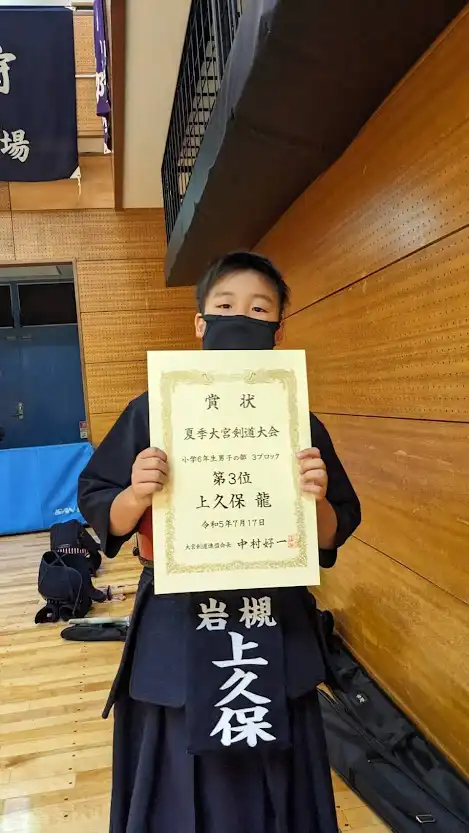 場
賞状
夏季大宮剣道大会
小学6年生男子の部 3ブロック
第3位
上久保 龍
令和5年7月17日
大宮剣道連盟会長 中村好一
岩槻
上久保